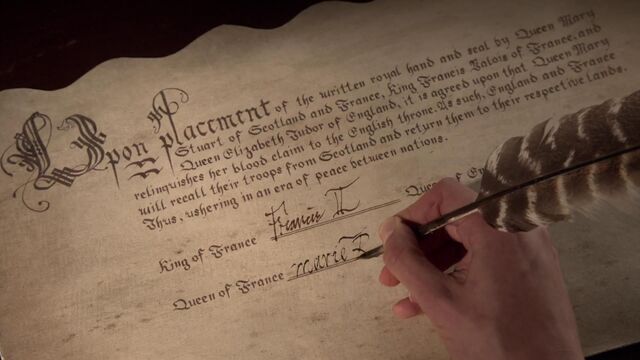 Upon placement of the written royal hand and seal by Queen Mary
Stuart of Scotland and France, King Francis Valois of France, and
Queen Elizabeth Tudor of England, it is agreed upon that Queen Mary
relinquishes her blood claim to the English throne. As such, England and France
will recall their troops from Scotland and return them to their respective lands.
Thus, ushering in an era of peace between nations.
King of France Francis II Queen of E
Queen of France Marie